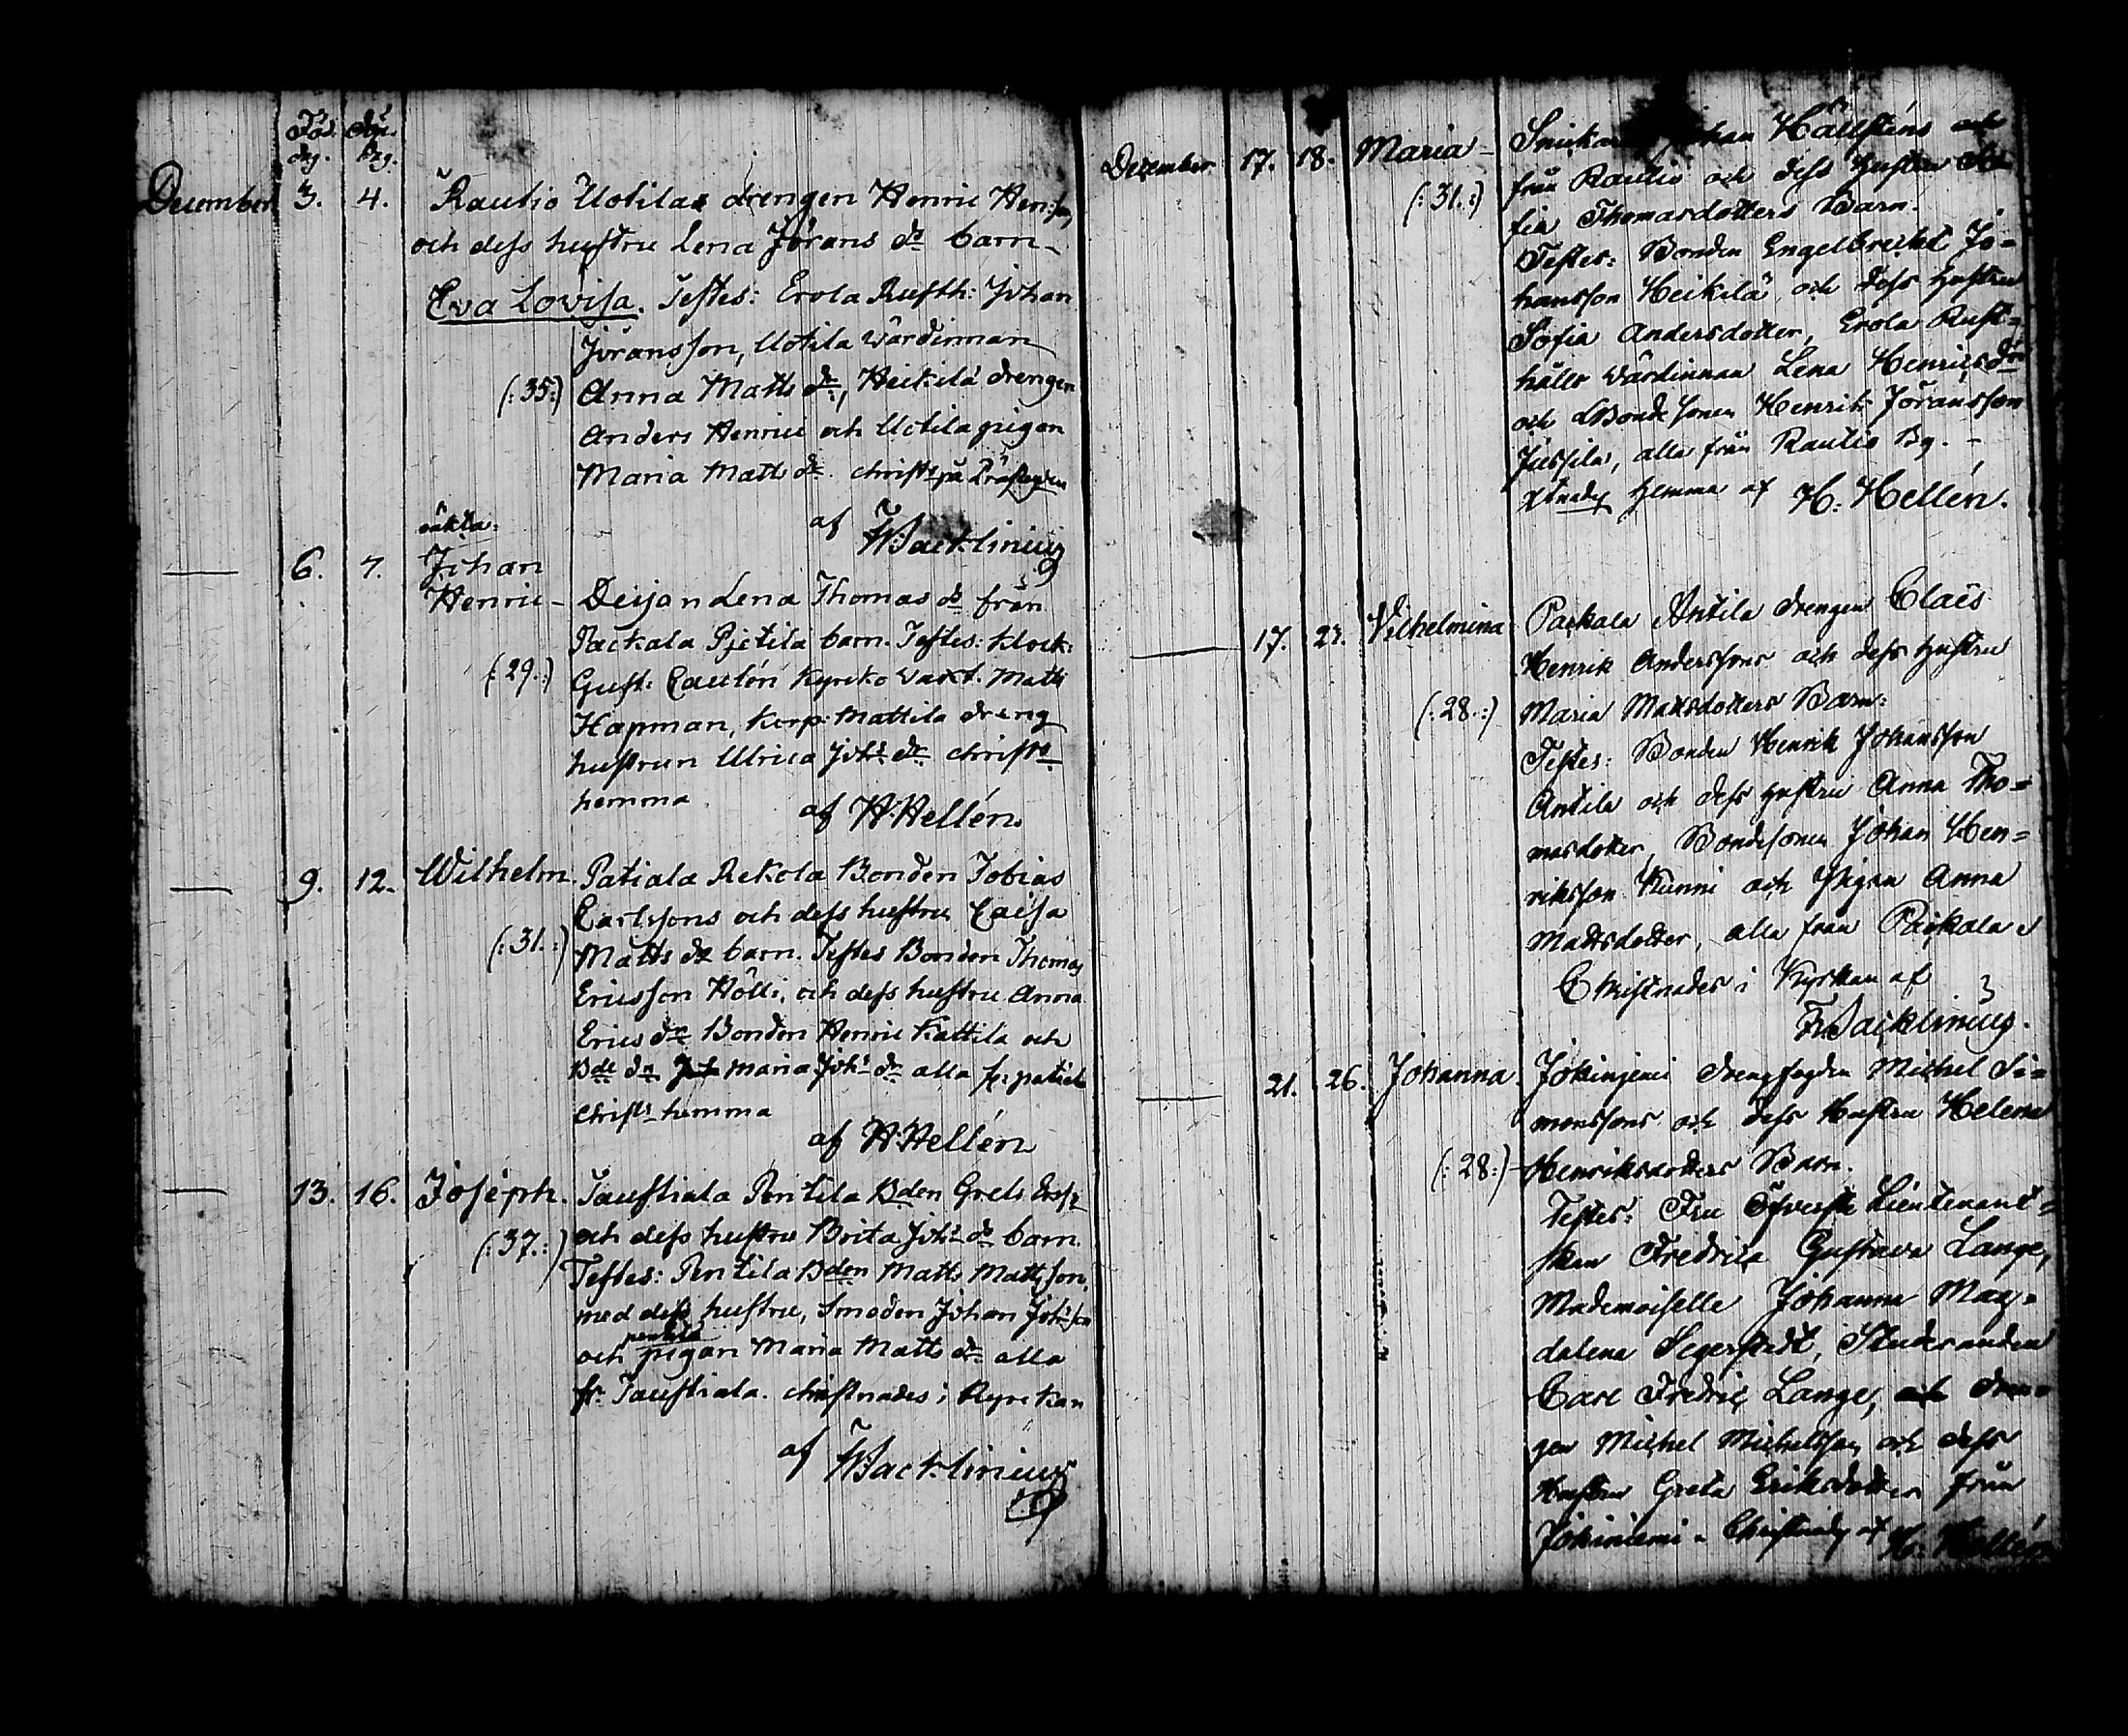 Föd. Chr.
dag. dag.
December 3. 4. Rautio Uotilas drengen Henric Henss.
och dess hustru Lena Jörans dr barn
Eva Lovisa. Testes: Erola Rusth: Johan
Jöransson, Uotila wärdinnan
(:35:) Anna Matts dr, Heikilä drengen
Anders Henric och Uotila pigan
Maria Matts dr. Christs på Prästegården
af W: Backlinius
oäkta.
6. 7. Johan
Henric - Deijan Lena Thomas dr från
Packala Pjetilä barn. Testes: Klock:
(:29:) Gust: Caulón Kyrko wakt. Matts
Hapman, Korp. Mattila dreng
hustrun Ulrica Johs dr Christs
hemma af H. Hellén.
9. 12. Wilhelm. Patiala Rekola Bonden Tobias
Carlssons och dess hustru Caisa
(:31:) Matts dr barn. Testes Bonden Thomas
Ericsson Hölli, och dess hustru Anna
Erics dr Bonden Henric Kattila och
Bde dr Maria Johs dr alla fr: patiala
Christs hemma
af H. Hellén
13. 16. Joseph. Taustiala Pentila Bden Grels
(:37:) och dess hustru Brita Johs dr barn.
Testes: Pentila Bden Matts Mattsson
med dess hustru, Smeden Johan Johsson
pentila
och pigan Maria Matts dr alla
fr. Taustiala. christnades i Kyrckan
af W: Backlinius
December 17. 18. Maria - Johan Hällsténs
(:31.:) från Rautio och dess hustru So
fia Thomasdotters Barn.
Testes: Bonden Engelbrecht Jo=
hansson Heikilä, och dess hustru
Sofia Andersdotter, Erola Rust=
hålls wärdinnan Lena Henricsdr
och Bondesonen Henrik Jöransson
Jussila, alla från Rautio By. -
Xstnades hemma af H: Hellén.
17. 27. Vilhelmina Packala Antila drengen Claës
Henrik Anderssons och dess hustru
(:28.:) Maria Mattsdotters Barn:
Testes: Bonden Henrik Johansson
Antila och dess hustru Anna Tho=
masdotter, Bondesonen Johan Hen=
riksson Kunni och Pigan Anna
Mattsdotter, alla från Packala
Christnades i Kyrkan af
W: Backlinius.
21. 26. Johanna. Jokinjemi drengfogden Michel Si=
monssons och dess Hustru Helena
(:28:) - Henriksdotters Barn.
Testes: Fru Öfverste Lieutenant=
skan Fredrica Gustava Lange,
Mademoiselle Johanna Mag=
dalena Segerstedt, Studeranden
Carl Fredric Lange, dren=
gen Michel Michelsson och dess
Hustru Greta Eriksdotter från
Jokiniemi. Christnades af H: Hellén.